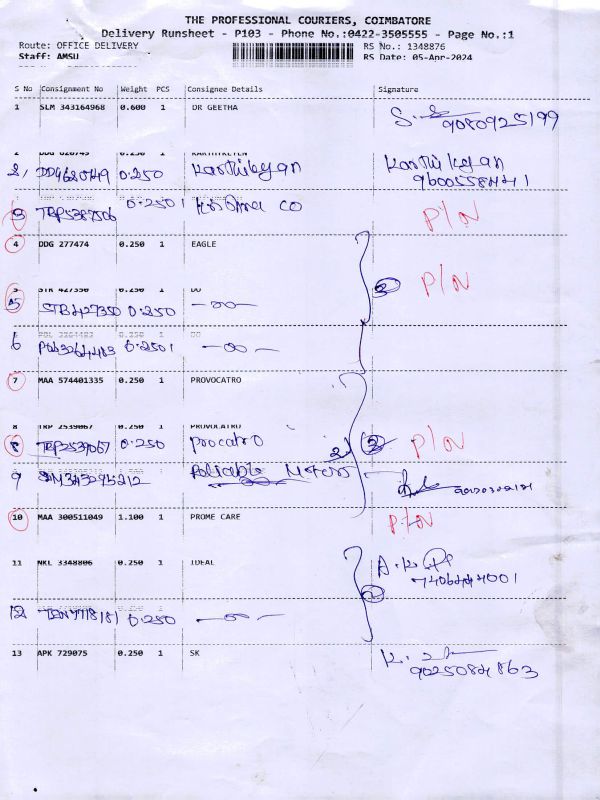 THE PROFESSIONAL COURIERS, COIMBATORE
Delivery Runsheet - P103 - Phone No.:0422-3505555 - Page No.:1
Route: OFFICE DELIVERY RS No.: 1348876
Staff: AMSU RS Date: 05-Apr-2024
S No Consignment No Weight PCS Consignee Details Signature
1 SLM 343164968 0.600 1 DR GEETHA
9080925199
2, 0.250 Karthikeyan Karthikeyan
9600558441
3 TRP5387506 0.250 1 Krishna CO P/N
4 DDG 277474 0.250 1 EAGLE
3 P/N
5 STR 427350 0.250 1 DO
5 STR427350 0.250 —do—
6 0.250 1 —do—
7 MAA 574401335 0.250 1 PROVOCATRO
8 TRP 2539067 0.250 1 PROVOCATRO
8 TRP2539067 0.250 procatro 2 P/N
9 Reliable Motors
10 MAA 300511049 1.100 1 PROME CARE P/N
11 NKL 3348806 0.250 1 IDEAL A.K
7406444001
12 0.250 —do—
13 APK 729075 0.250 1 SK K.
9025084863